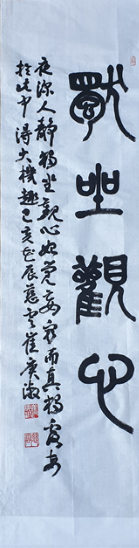 獨坐觀心
夜深人靜獨坐觀心始覺妄窮而真獨露每
於此中得大機趣己亥 崔